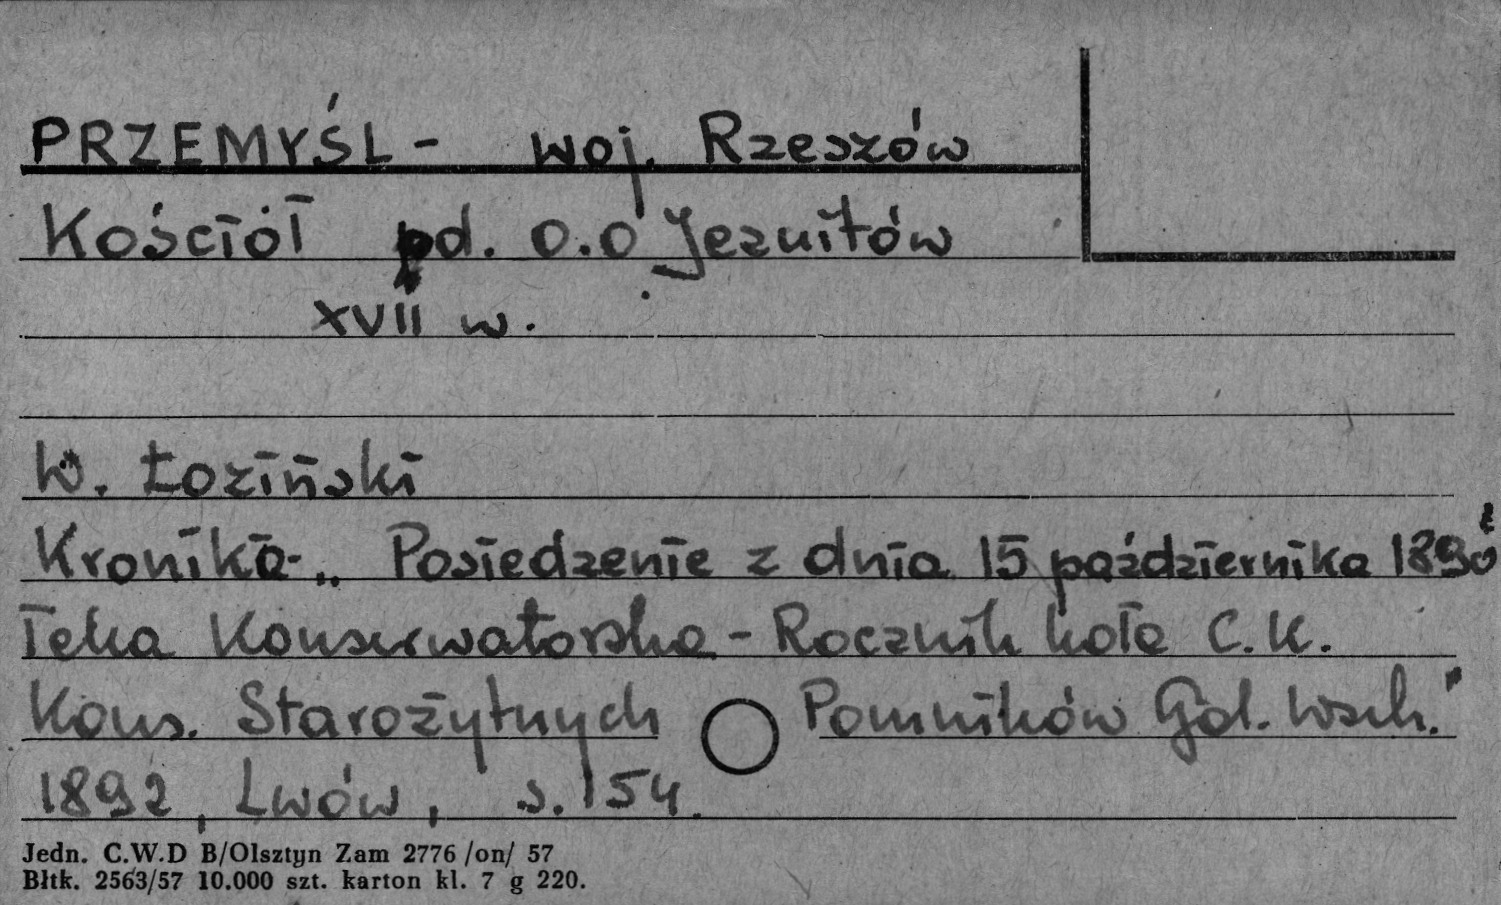 PRZEMYŚL - woj. Rzeszów
Kościół pd. O.O Jezuitów
XVII w.
W. Łoziński
Kronika „ Posiedzenie z dnia 15 października 1890 z
Teka Konserwatorska - Rocznik koła C.K.
Kons. Starożytnych Pomników Gal. Wsch."
1892, Lwów, s. 154.
Jedn. C.W.D B/Olsztyn Zam 2776 /on/ 57
Błtk. 2563/57 10.000 szt. karton kl. 7 g 220.